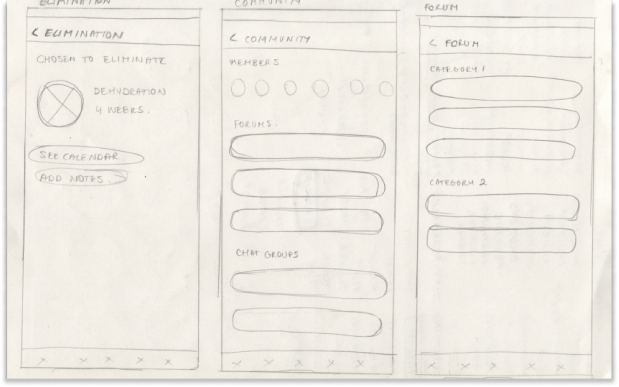 ELIMINATION
< ELIMINATION
CHOSEN TO ELIMINATE
DEHYDRATION
4 WEEKS.
SEE CALENDAR
ADD NOTES.
COMMUNITY
< COMMUNITY
MEMBERS
FORUMS.
CHAT GROUPS
FORUM
< FORUM
CATEGORY 1
CATEGORY 2